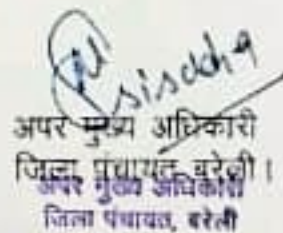 अपर मुख्य अधिकारी
जिला पंचायत बरेली।
अपर मुख्य अधिकारी
जिला पंचायत, बरेली